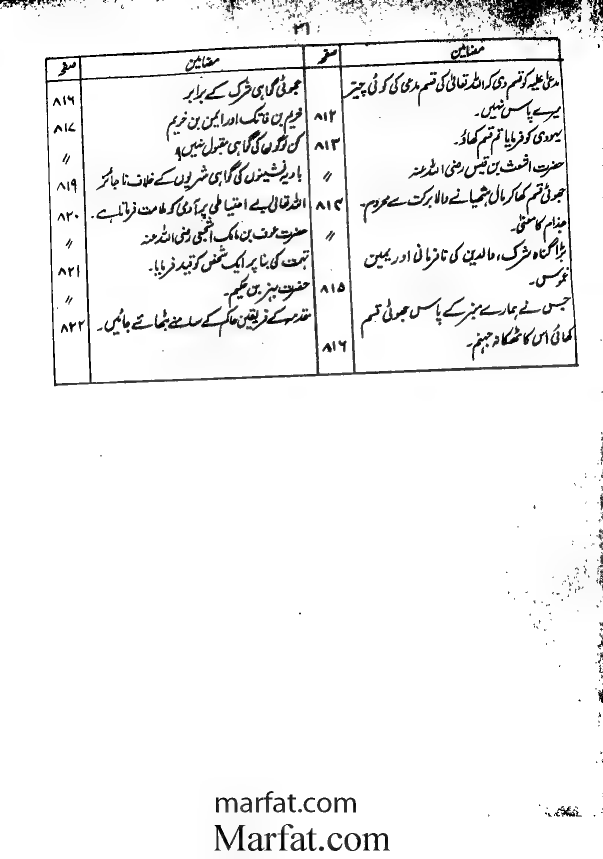 ۳۱
مضامین صفحہ
مدعیٰ علیہ کو قسم دی کہ اللہ تعالیٰ کی قسم مدعی کی کوئی چیز
میرے پاس نہیں۔ ۸۱۲
یہودی کو فرمایا تم قسم کھاؤ۔ ۸۱۳
حضرت اشعث بن قیس رضی اللہ عنہ 〃
جھوٹی قسم کھا کر مال ہتھیانے والا برکت سے محروم۔ ۸۱۴
جذام کا معنٰی۔ 〃
بڑا گناہ، شرک، والدین کی نافرمانی اور یمین
غموس۔ ۸۱۵
جس نے ہمارے منبر کے پاس جھوٹی قسم
کھائی اس کا ٹھکانہ جہنم۔ ۸۱۶
مضامین صفحہ
جھوٹی گواہی شرک کے برابر ۸۱۶
خریم بن فاتک اور ایمن بن خریم ۸۱۷
کن لوگوں کی گواہی مقبول نہیں؟ 〃
بادیہ نشینوں کی گواہی شہریوں کے خلاف ناجائز ۸۱۹
اللہ تعالیٰ بے احتیاطی پر آدمی کو ملامت فرماتا ہے۔ ۸۲۰
حضرت عوف بن مالک اشجعی رضی اللہ عنہ 〃
تہمت کی بنا پر ایک شخص کو قید فرمایا۔ ۸۲۱
حضرت بہز بن حکیم۔ 〃
مقدمہ کے فریقین حاکم کے سامنے بٹھائے جائیں۔ ۸۲۲
marfat.com
Marfat.com